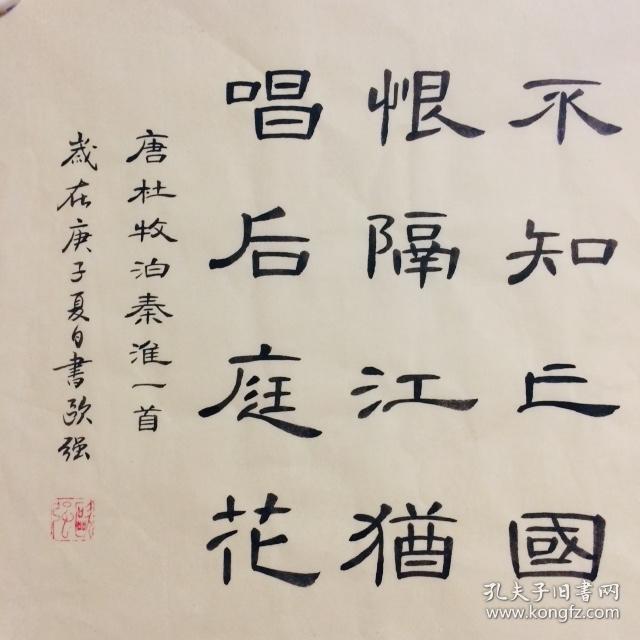 不知亡國
恨隔江猶
唱后庭花
唐杜牧泊秦淮一首
歲在庚子夏日書歐强
孔夫子旧書网
www.kongfz.com